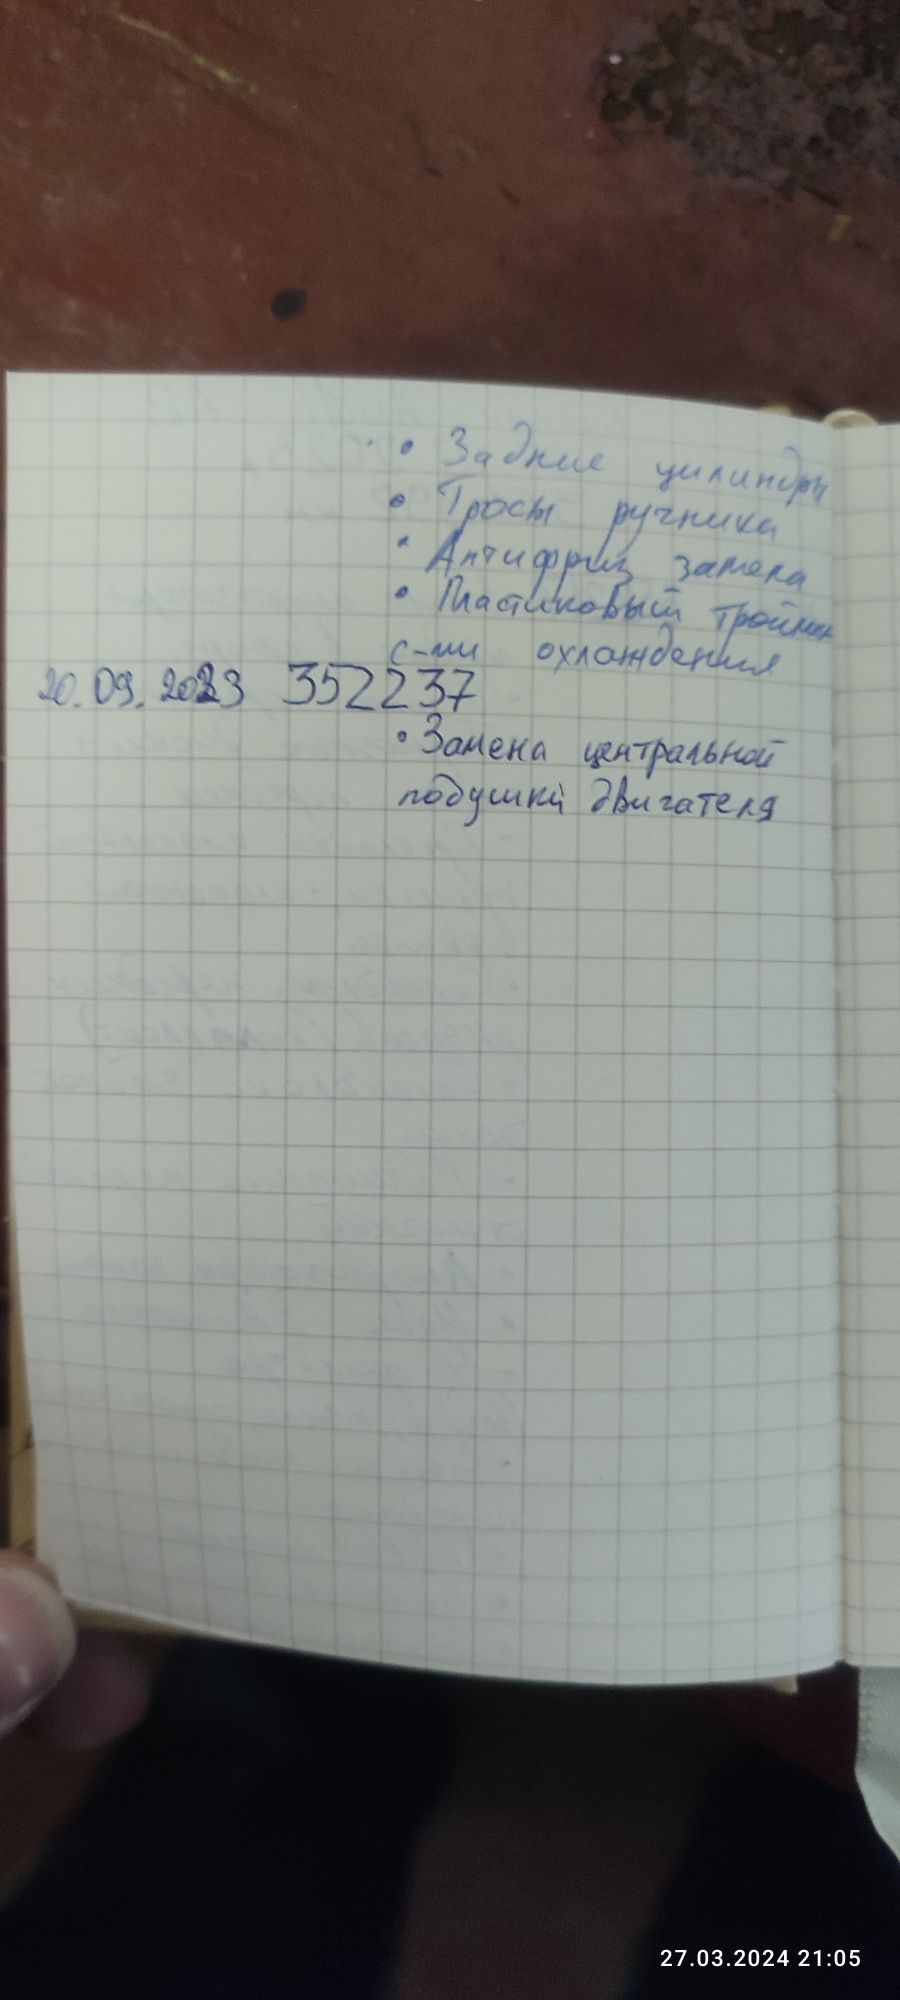 • Задние цилиндры
• Тросы ручника
• Антифриз замена
• Пластиковый тройник
с-мы охлаждения
20.09.2023 352237
• Замена центральной
подушки двигателя
27.03.2024 21:05